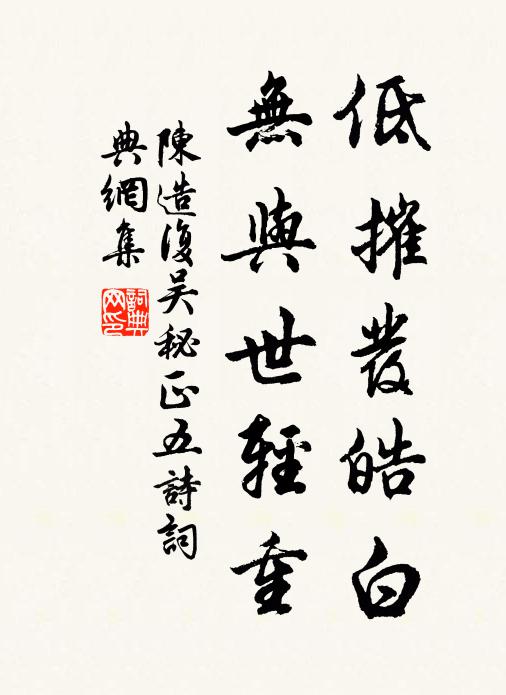 低摧發皓白
無與世輕重
陳造復吳秘正五詩詞
典網集
詞典
网印